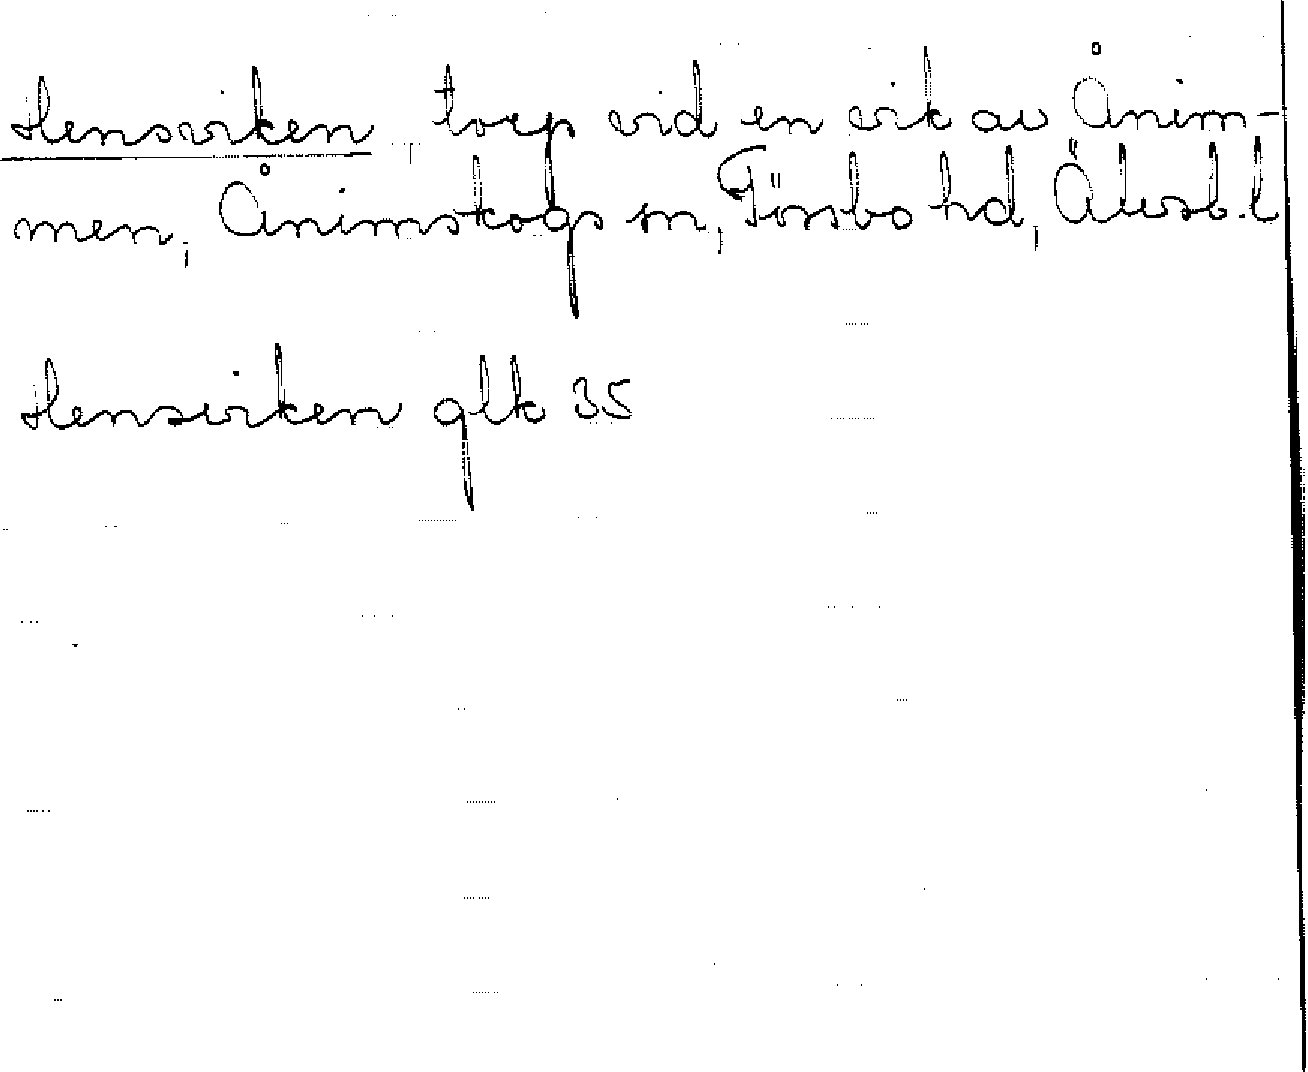 Hensviken torp vid en vik av Ånim-
men, Ånimskogs sn, Tössbo hd, Älvsb. l
Hensviken glk 35